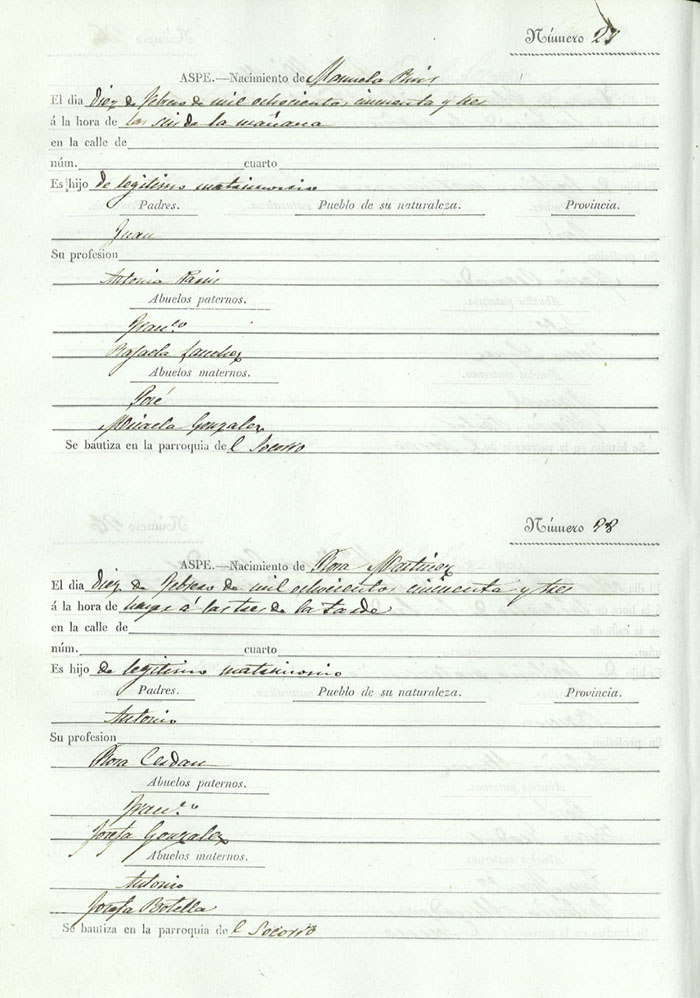 Número 27
ASPE.—Nacimiento de Manuela
El dia diez de febrero de mil ochocientos cincuenta y tres
á la hora de las seis de la mañana
en la calle de
núm. cuarto
Es hijo de legitimo matrimonio
Padres. Pueblo de su naturaleza. Provincia.
Juan
Su profesion
Antonia
Abuelos paternos.
Fran.co
Rafaela Sanchez
Abuelos maternos.
José
Micaela Gonzalez
Se bautiza en la parroquia de l Socorro
Número 28
ASPE.—Nacimiento de Rosa Martinez
El dia diez de febrero de mil ochocientos cincuenta y tres
á la hora de á las tres de la tarde
en la calle de
núm. cuarto
Es hijo de legitimo matrimonio
Padres. Pueblo de su naturaleza. Provincia.
Antonio
Su profesion
Rosa Cerdan
Abuelos paternos.
Fran.co
Josefa Gonzalez
Abuelos maternos.
Antonio
Josefa Botella
Se bautiza en la parroquia de l Socorro